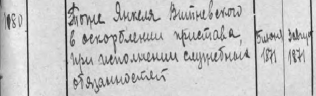 1080
Тоже Янкеля Витневского
в оскорблении пристава,
при исполнении служебных
обязанностей
6 июня 1871
1871